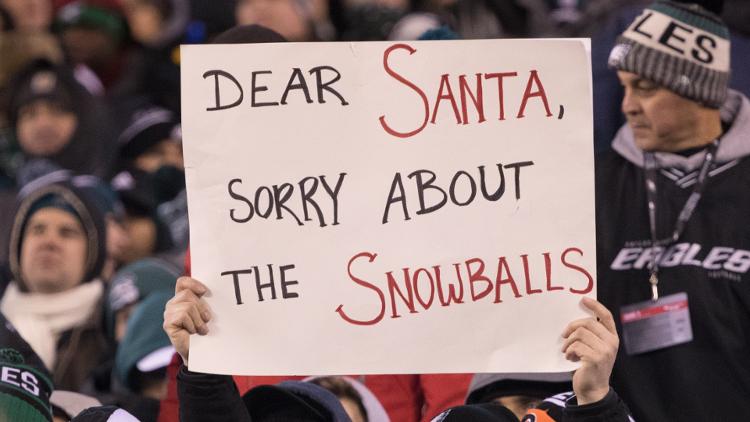 DEAR SANTA,
SORRY ABOUT
THE SNOWBALLS
LES
EAGLES
FOOTBALL
ES